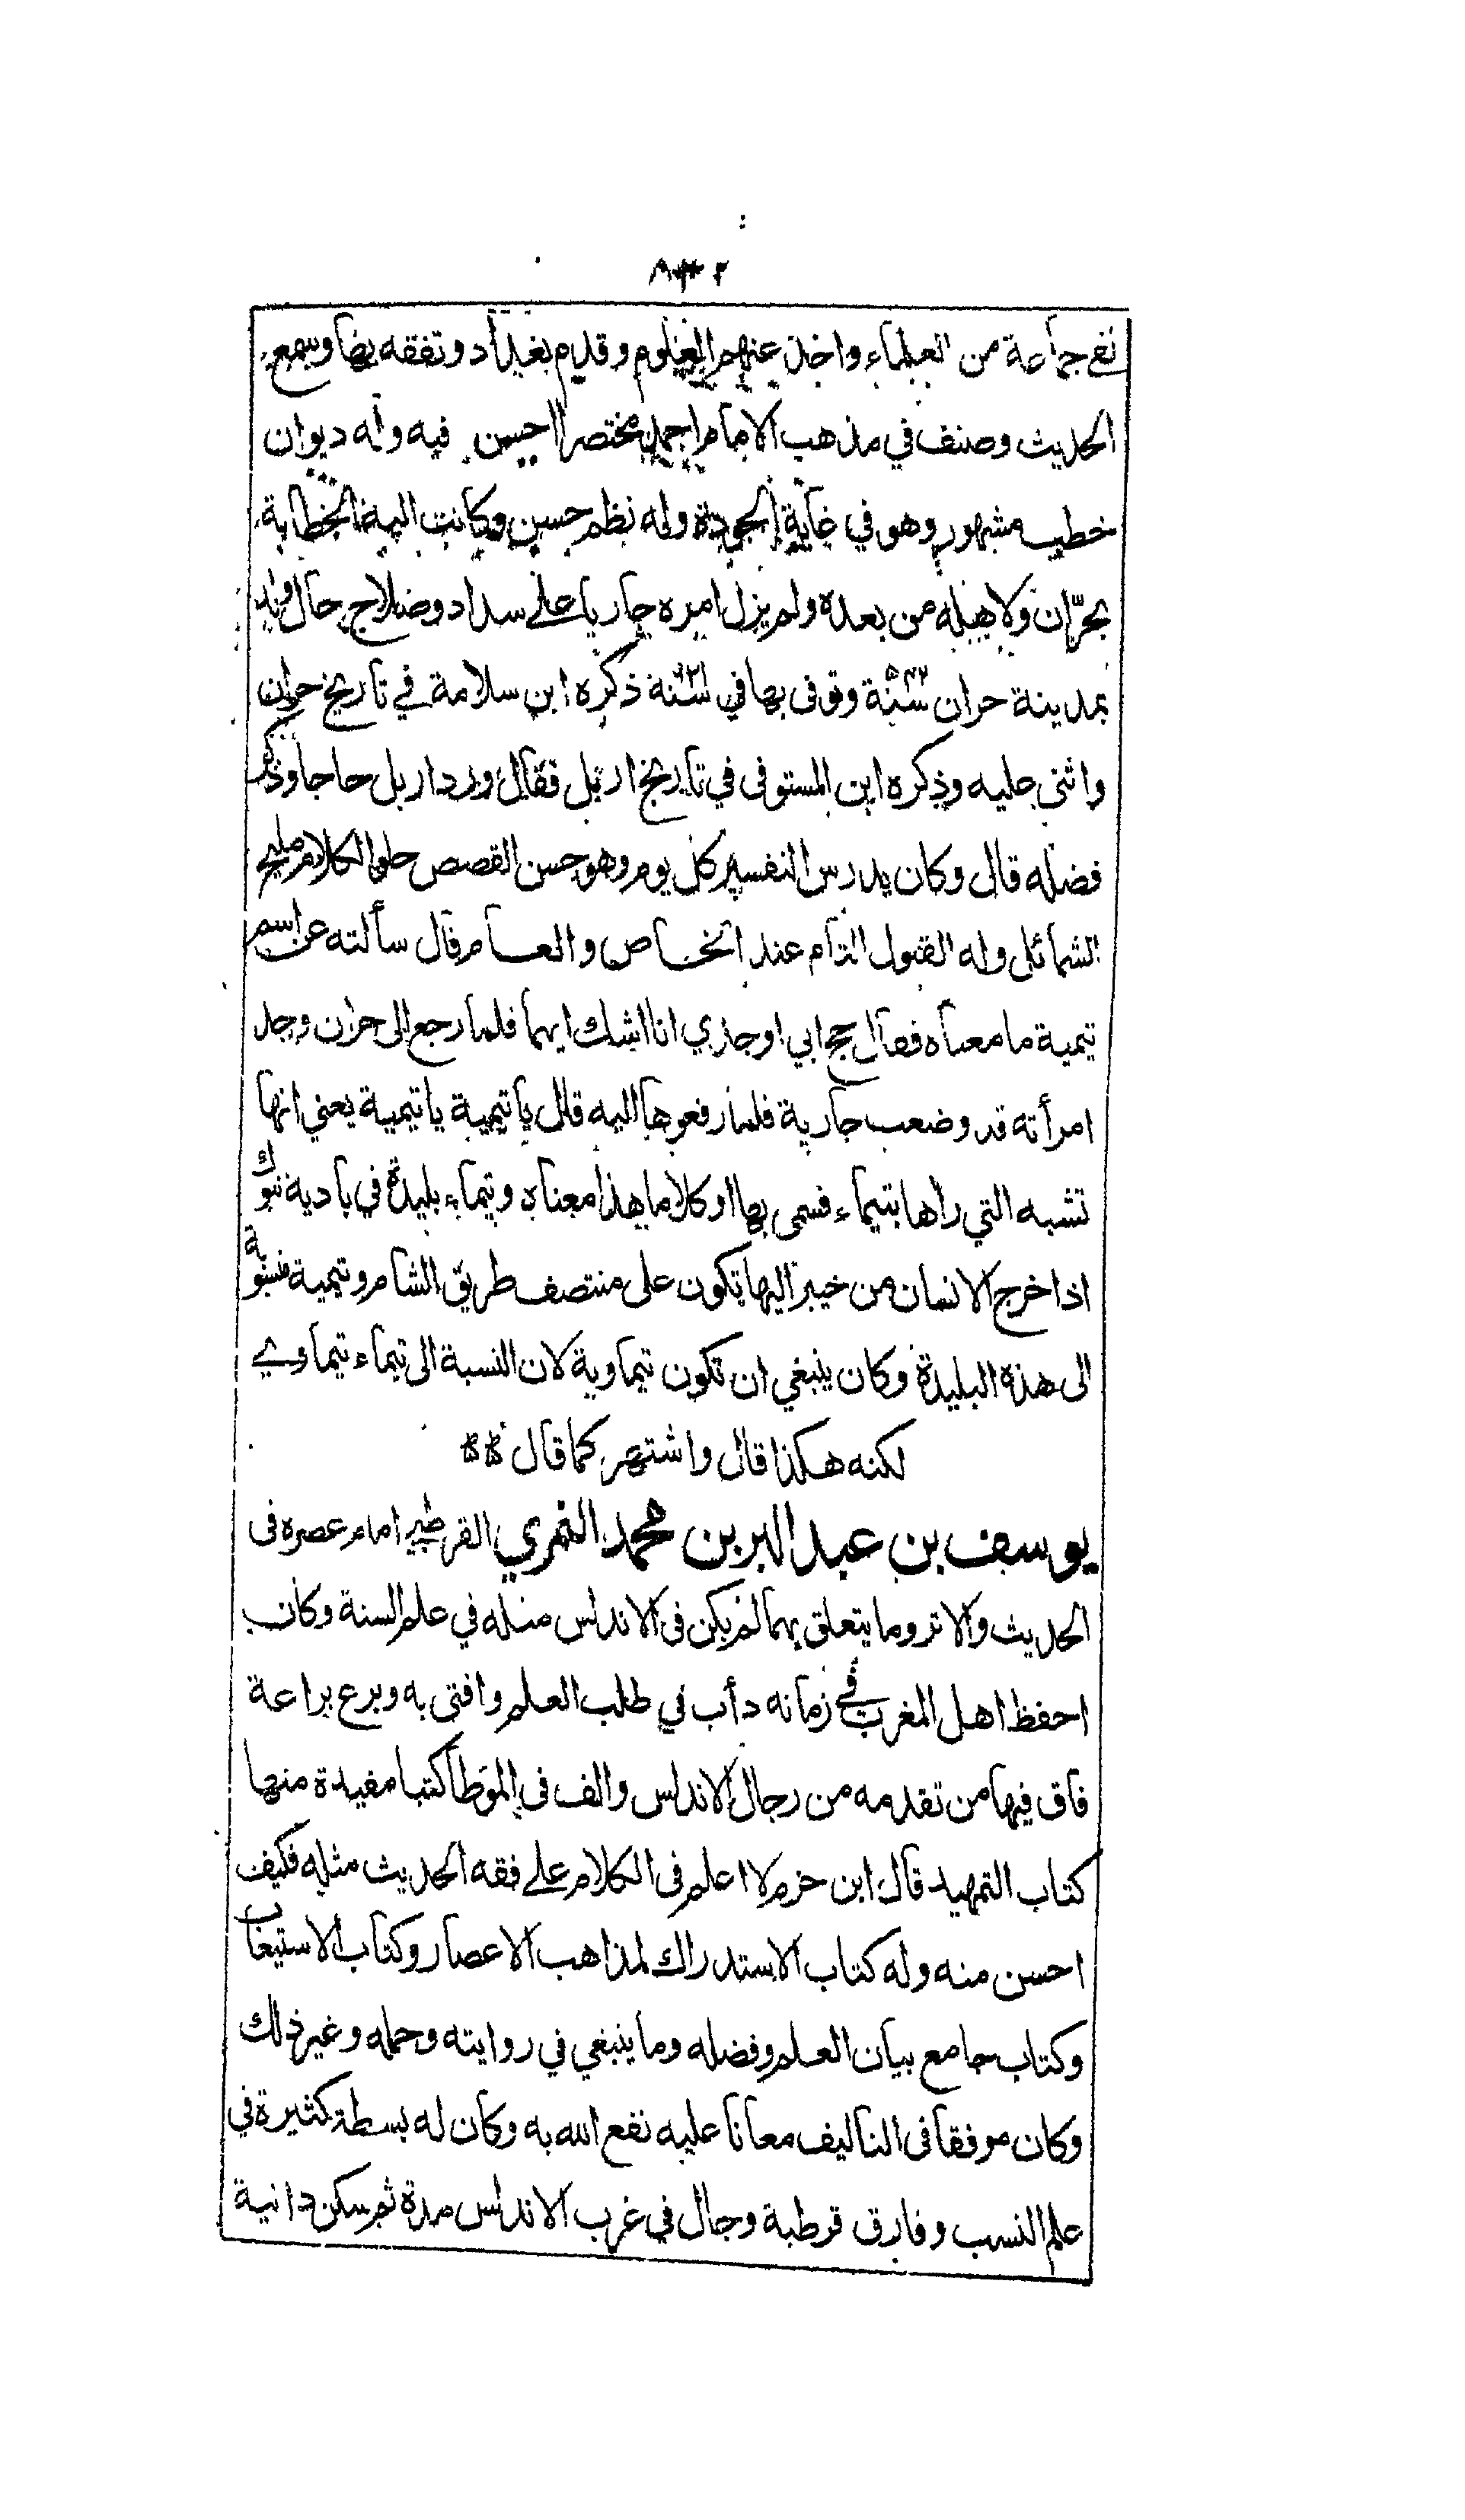 جماعة من العلماء واخذ عنهم العلوم وقدم بغداد وتفقه بها وسمع
الحديث وصنف في مذهب الامام احمد مختصرا احسن فيه وله ديوان
خطب مشهور وهو في غاية الجودة وله نظم حسن وكانت اليه الخطابة
بحرّان ولاهله من بعده ولم يزل امره جاريا على سداد وصلاح حال ولد
بمدينة حران سنة وتوفى بها في سنة ذكره ابن سلامة في تاريخ حران
واثنى عليه وذكره ابن المستوفى في تاريخ اربل فقال ورد اربل حاجا وذكر
فضله قال وكان يدرس التفسير كل يوم وهو حسن القصص حلو الكلام مليح
الشمائل وله القبول التام عند الخاص والعام قال سألته عن اسم
تيمية ما معناه فقال حج ابي او جدي انا اشك ايهما فلما رجع الى حران وجد
امرأته قد وضعت جارية فلما رفعوها اليه قال يا تيمية يا تيمية يعني انها
تشبه التي راها بتيماء فسمى بها او كلاما هذا معناه وتيماء بليدة في بادية تبوك
اذا خرج الانسان من خيبر اليها تكون على منتصف طريق الشام وتيمية منسوبة
الى هذه البليدة وكان ينبغي ان تكون تيماوية لان النسبة الى تيماء تيماوي
لكنه هكذا قال واشتهر كما قال
يوسف بن عبد البر بن محمد النمري القرطبي امام عصره فى
الحديث والاثر وما يتعلق بهما لم يكن فى الاندلس مثله في علم السنة وكان
احفظ اهل المغرب في زمانه دأب في طلب العلم وافتى به وبرع براعة
فاق فيها من تقدمه من رجال الاندلس والف فى الموطأ كتبا مفيدة منها
كتاب التمهيد قال ابن حزم لا اعلم فى الكلام على فقه الحديث مثله فكيف
احسن منه وله كتاب الاستدراك لمذاهب الاعصار وكتاب الاستيعاب
وكتاب جامع بيان العلم وفضله وما ينبغي في روايته وحمله وغير ذلك
وكان موفقا فى التاليف معانا عليه نفع الله به وكان له بسطة كثيرة في
علم النسب وفارق قرطبة وجال في غرب الاندلس مدة ثم سكن دانية